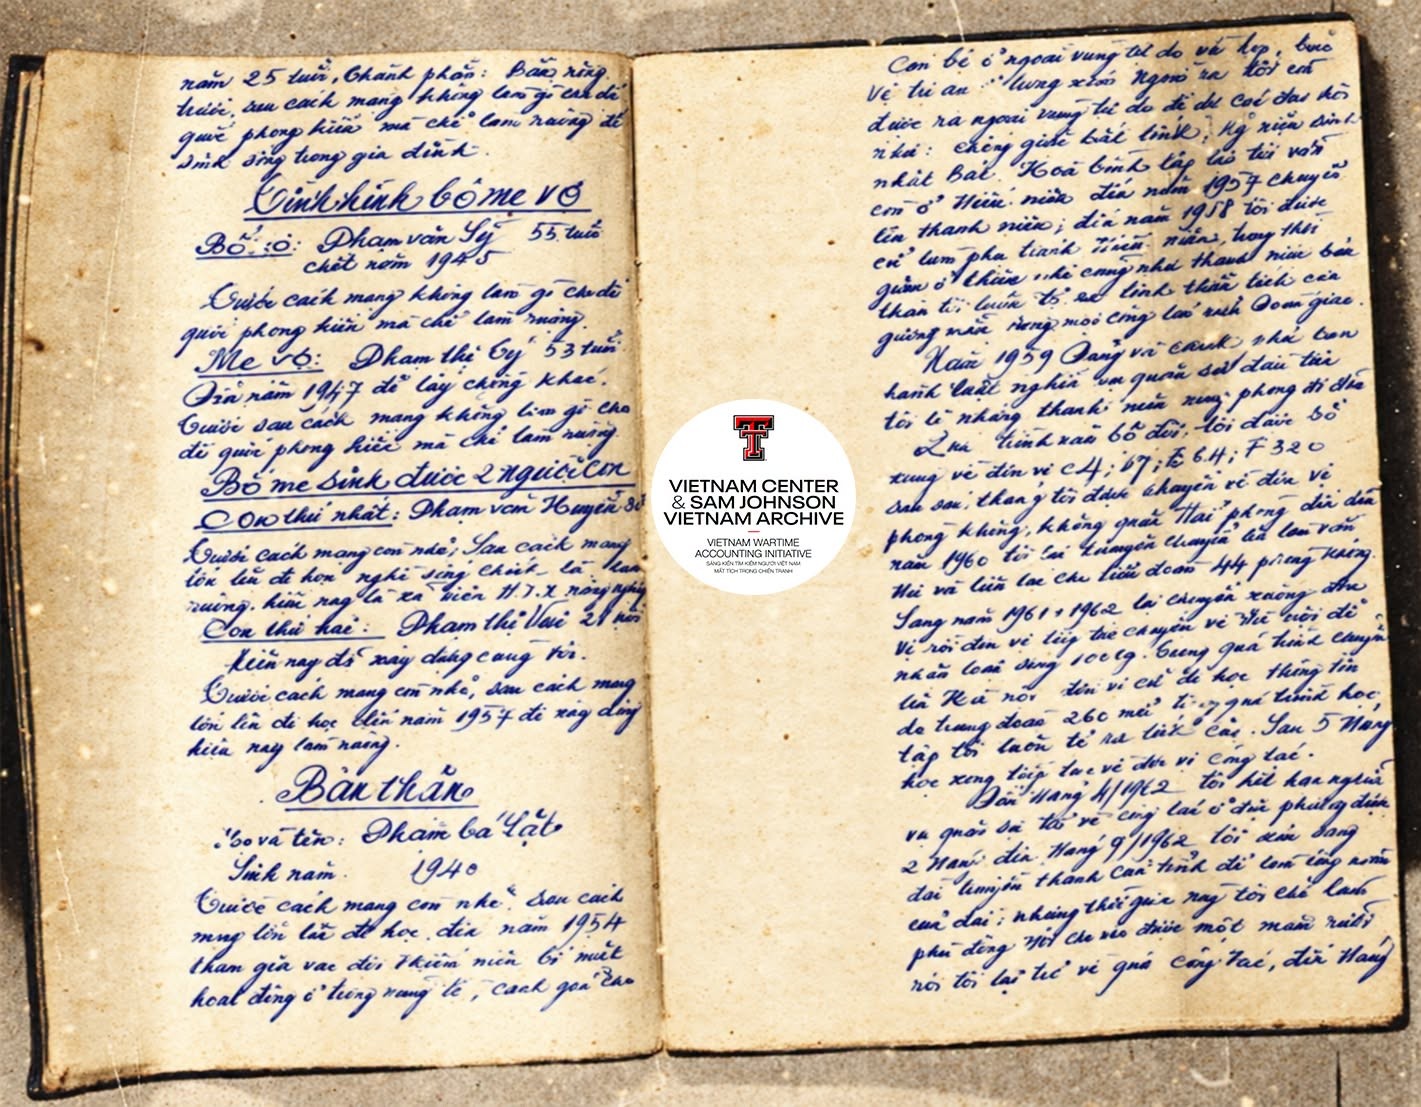 năm 25 tuổi, thành phần: Bần nông.
trước, sau cách mạng không làm gì cho đế
quốc phong kiến mà chỉ làm ruộng để
sinh sống trong gia đình.
Tình hình bố mẹ vợ
Bố vợ: Phạm văn Sỹ 55 tuổi
chết năm 1945
Trước cách mạng không làm gì cho đế
quốc phong kiến mà chỉ làm ruộng.
Mẹ vợ: Phạm thị Cý 53 tuổi
Đến năm 1947 đi lấy chồng khác.
Trước sau cách mạng không làm gì cho
đế quốc phong kiến mà chỉ làm ruộng.
Bố mẹ sinh được 2 người con
Con thứ nhất: Phạm van Huyến
Trước cách mạng con nhỏ, Sau cách mạng
lớn lên đi học nghề sống chính là làm
ruộng. hiện nay là xã viên H.T.X nông nghiệp
Con thứ hai: Phạm thị 21 tuổi
Hiện nay đã xây dựng cùng tôi.
Trước cách mạng con nhỏ, sau cách mạng
lớn lên đi học đến năm 1957 đi xây dựng
hiện nay làm ruộng.
Bản thân
Họ và tên: Phạm bá Lật
Sinh năm 1940
Trước cách mạng con nhỏ. Sau cách
mạng lớn lên đi học. đến năm 1954
tham gia vào đội thiếu niên bí mật
hoạt động ở trong vùng tề, canh gác cho
Cán bộ ở ngoài vùng tự do về họp, bảo
vệ trị an thung xóm Ngoài ra tôi còn
được ra ngoài vùng tự do để dự các đại hội
như: chống giặc bắt lính; kỷ niệm sinh
nhật Bác. Hoà bình lập lại tôi vẫn
còn ở thiếu niên đến năm 1957 chuyển
lên thanh niên; đến năm 1958 tôi được
cử làm phụ trách thiếu niên, trong thời
gian ở thiếu nhi cũng như thanh niên bản
thân tôi luôn tỏ ra tinh thần tích cực
gương mẫu trong mọi công tác mà Đoàn giao.
Năm 1959 Đảng và chính phủ ban
hành luật nghĩa vụ quân sự đầu tiên
tôi là những thanh niên xung phong đi đầu
Quá trình vào bộ đội: tôi được bổ
xung về đơn vị C4; b7; E 64; F 320
sau sáu tháng tôi được chuyển về đơn vị
phòng không, không quân Hải phòng đến đầu
năm 1960 tôi lại chuyển làm văn
thư và liên lạc cho tiểu đoàn 44 phòng không.
Sang năm 1961 + 1962 lại chuyển xuống đơn
vị rồi đơn vị tiếp tục chuyển về
nhận loại súng 100 ly. Trong quá trình chuyển
lên Hà nội đơn vị cử đi học thông tin
do trung đoàn 260 mở trong quá trình học
tập tôi luôn tỏ ra tích cực. Sau 5 tháng
học xong tiếp tục về đơn vị công tác.
Đến tháng 4/1962 tôi hết hạn nghĩa
vụ quân sự và về công tác ở địa phương được
2 tháng đến tháng 9/1962 tôi sang
đài truyền thanh can tỉnh để làm công nhân
của đài; nhưng thời gian này tôi chỉ làm
phụ động một năm rưỡi
rồi tôi lại trở về quá công tác, đến tháng
VIETNAM CENTER
& SAM JOHNSON
VIETNAM ARCHIVE
VIETNAM WARTIME
ACCOUNTING INITIATIVE
SÁNG KIẾN TÌM KIẾM NGƯỜI VIỆT NAM
MẤT TÍCH TRONG CHIẾN TRANH